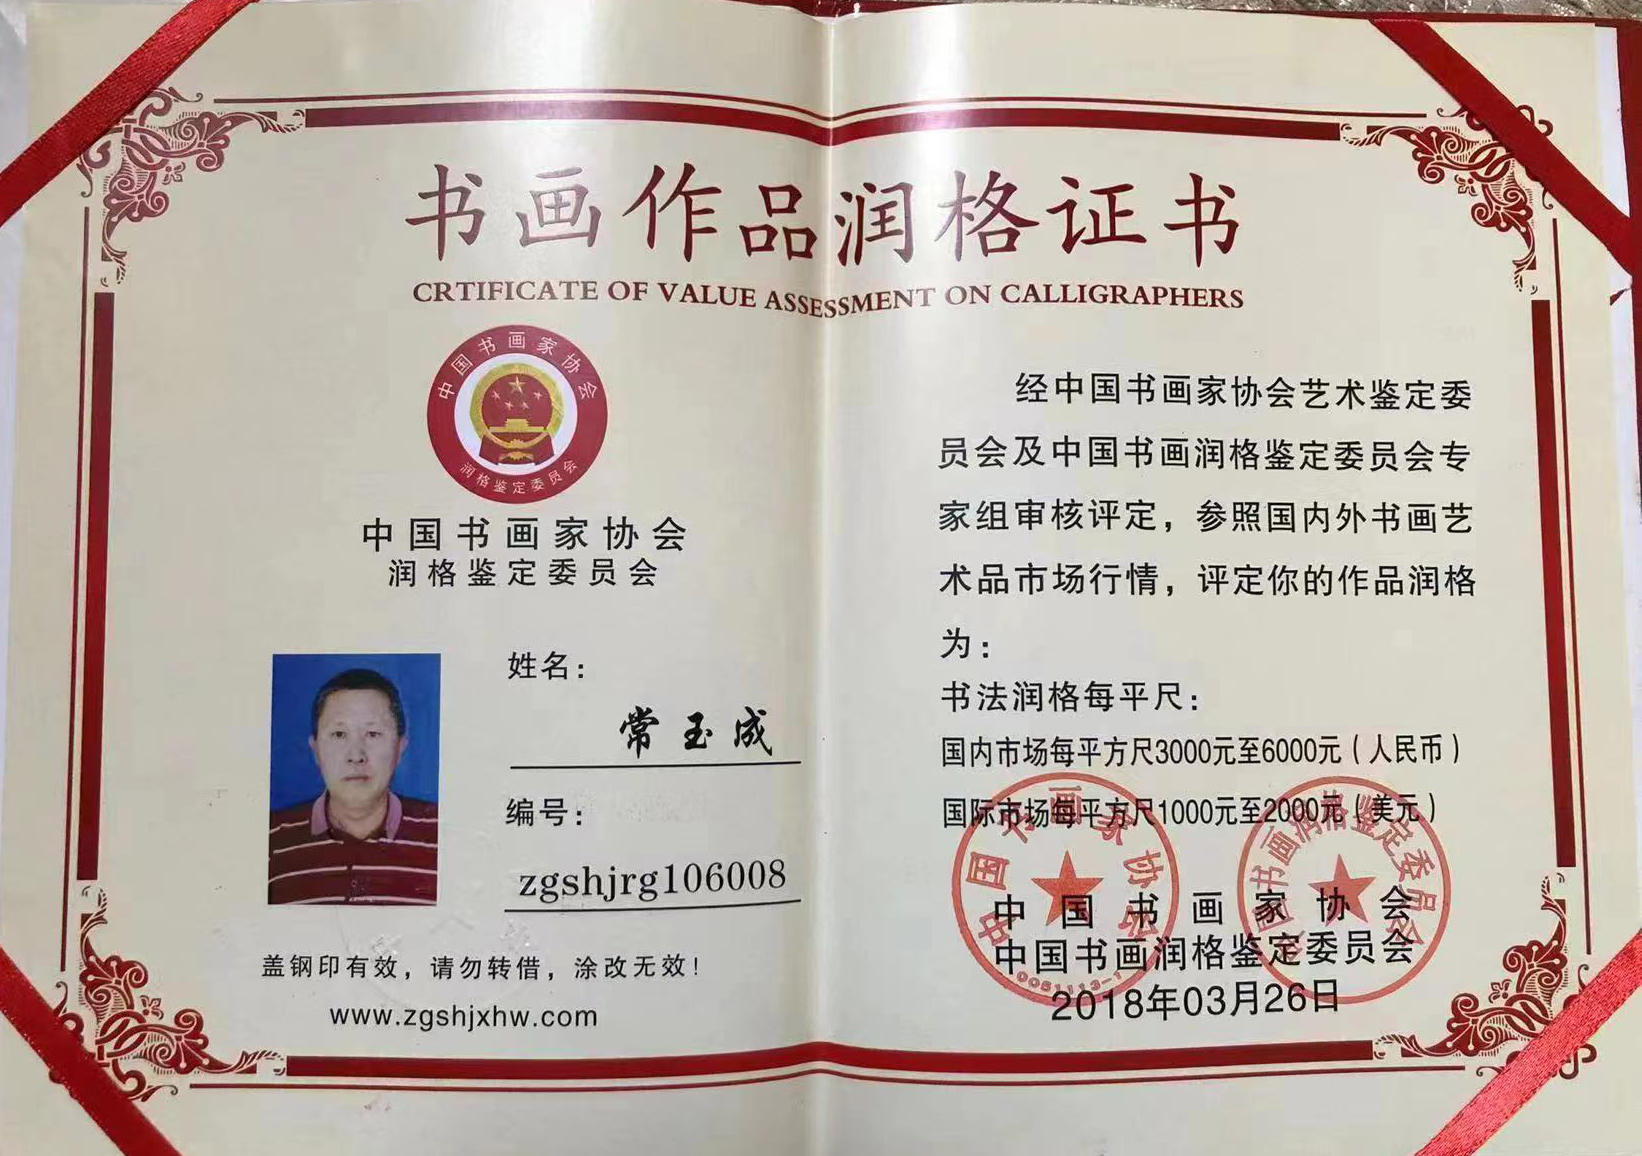 书画作品润格证书
CRTIFICATE OF VALUE ASSESSMENT ON CALLIGRAPHERS
中国书画家协会
润格鉴定委员会
中国书画家协会
润格鉴定委员会
姓名：
常玉成
编号：
zgshjrg106008
盖钢印有效，请勿转借，涂改无效！
www.zgshjxhw.com
经中国书画家协会艺术鉴定委
员会及中国书画润格鉴定委员会专
家组审核评定，参照国内外书画艺
术品市场行情，评定你的作品润格
为：
书法润格每平尺：
国内市场每平方尺3000元至6000元（人民币）
国际市场每平方尺1000元至2000元（美元）
中国书画家协会
中国书画润格鉴定委员会
2018年03月26日
中国书画家协会
中国书画润格鉴定委员会